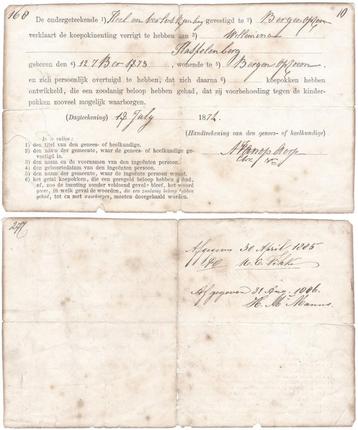 168 10
De ondergeteekende ¹) Heel en verloskundig gevestigd te ²) Bergen op Zoom
verklaart de koepokinenting verrigt te hebben aan ³) Willemina
geboren den ⁴) 12 7ber 1873, wonende te ⁵) Bergen op Zoom
en zich persoonlijk overtuigd te hebben, dat zich daarna ⁶) koepokken hebben
ontwikkeld, die een zoodanig beloop hebben gehad, dat zij voorbehoeding tegen de kinder-
pokken moveel mogelijk waarborgen.
(Dagteekening) 12 July 1874.
(Handteekening van den genees- of heelkundige)
In te vullen:
1) den titel van den genees- of heelkundige.
2) den naam der gemeente, waar de genees- of heelkundige ge-
vestigd is.
3) den naam en de voornamen van den ingeënten persoon.
4) den geboortedatum van den ingeënten persoon.
5) den naam der gemeente, waar de ingeënte persoon woont.
6) het getal koepokken, die een geregeld beloop hebben gehad,
of, zoo de inenting zonder voldoend gevolg bleef, het woord
geen, in welk geval de woorden, die een zoodanig beloop hebben
gehad, tot en met waarborgen, moeten doorgehaald worden.
Afgegeven 30 April 1885
Afgegeven 31 Aug. 1886.